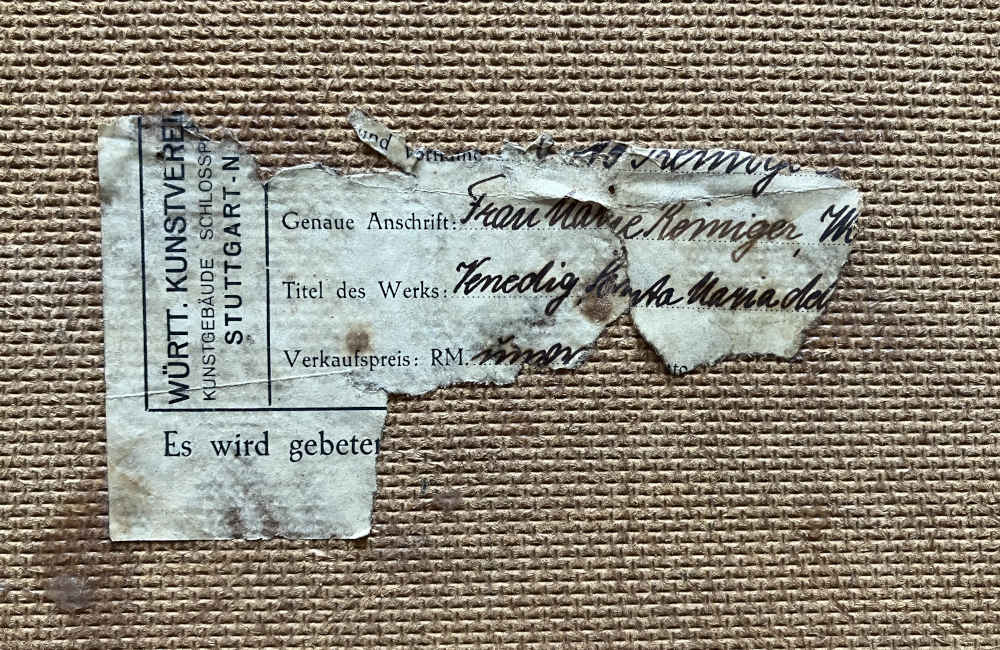 WÜRTT. KUNSTVEREI
KUNSTGEBÄUDE SCHLOSSP
STUTTGART-N
und Vorname
Genaue Anschrift: Frau Marie Reiniger, W
Titel des Werks: Venedig Santa Maria del
Verkaufspreis: RM.
Es wird gebeten